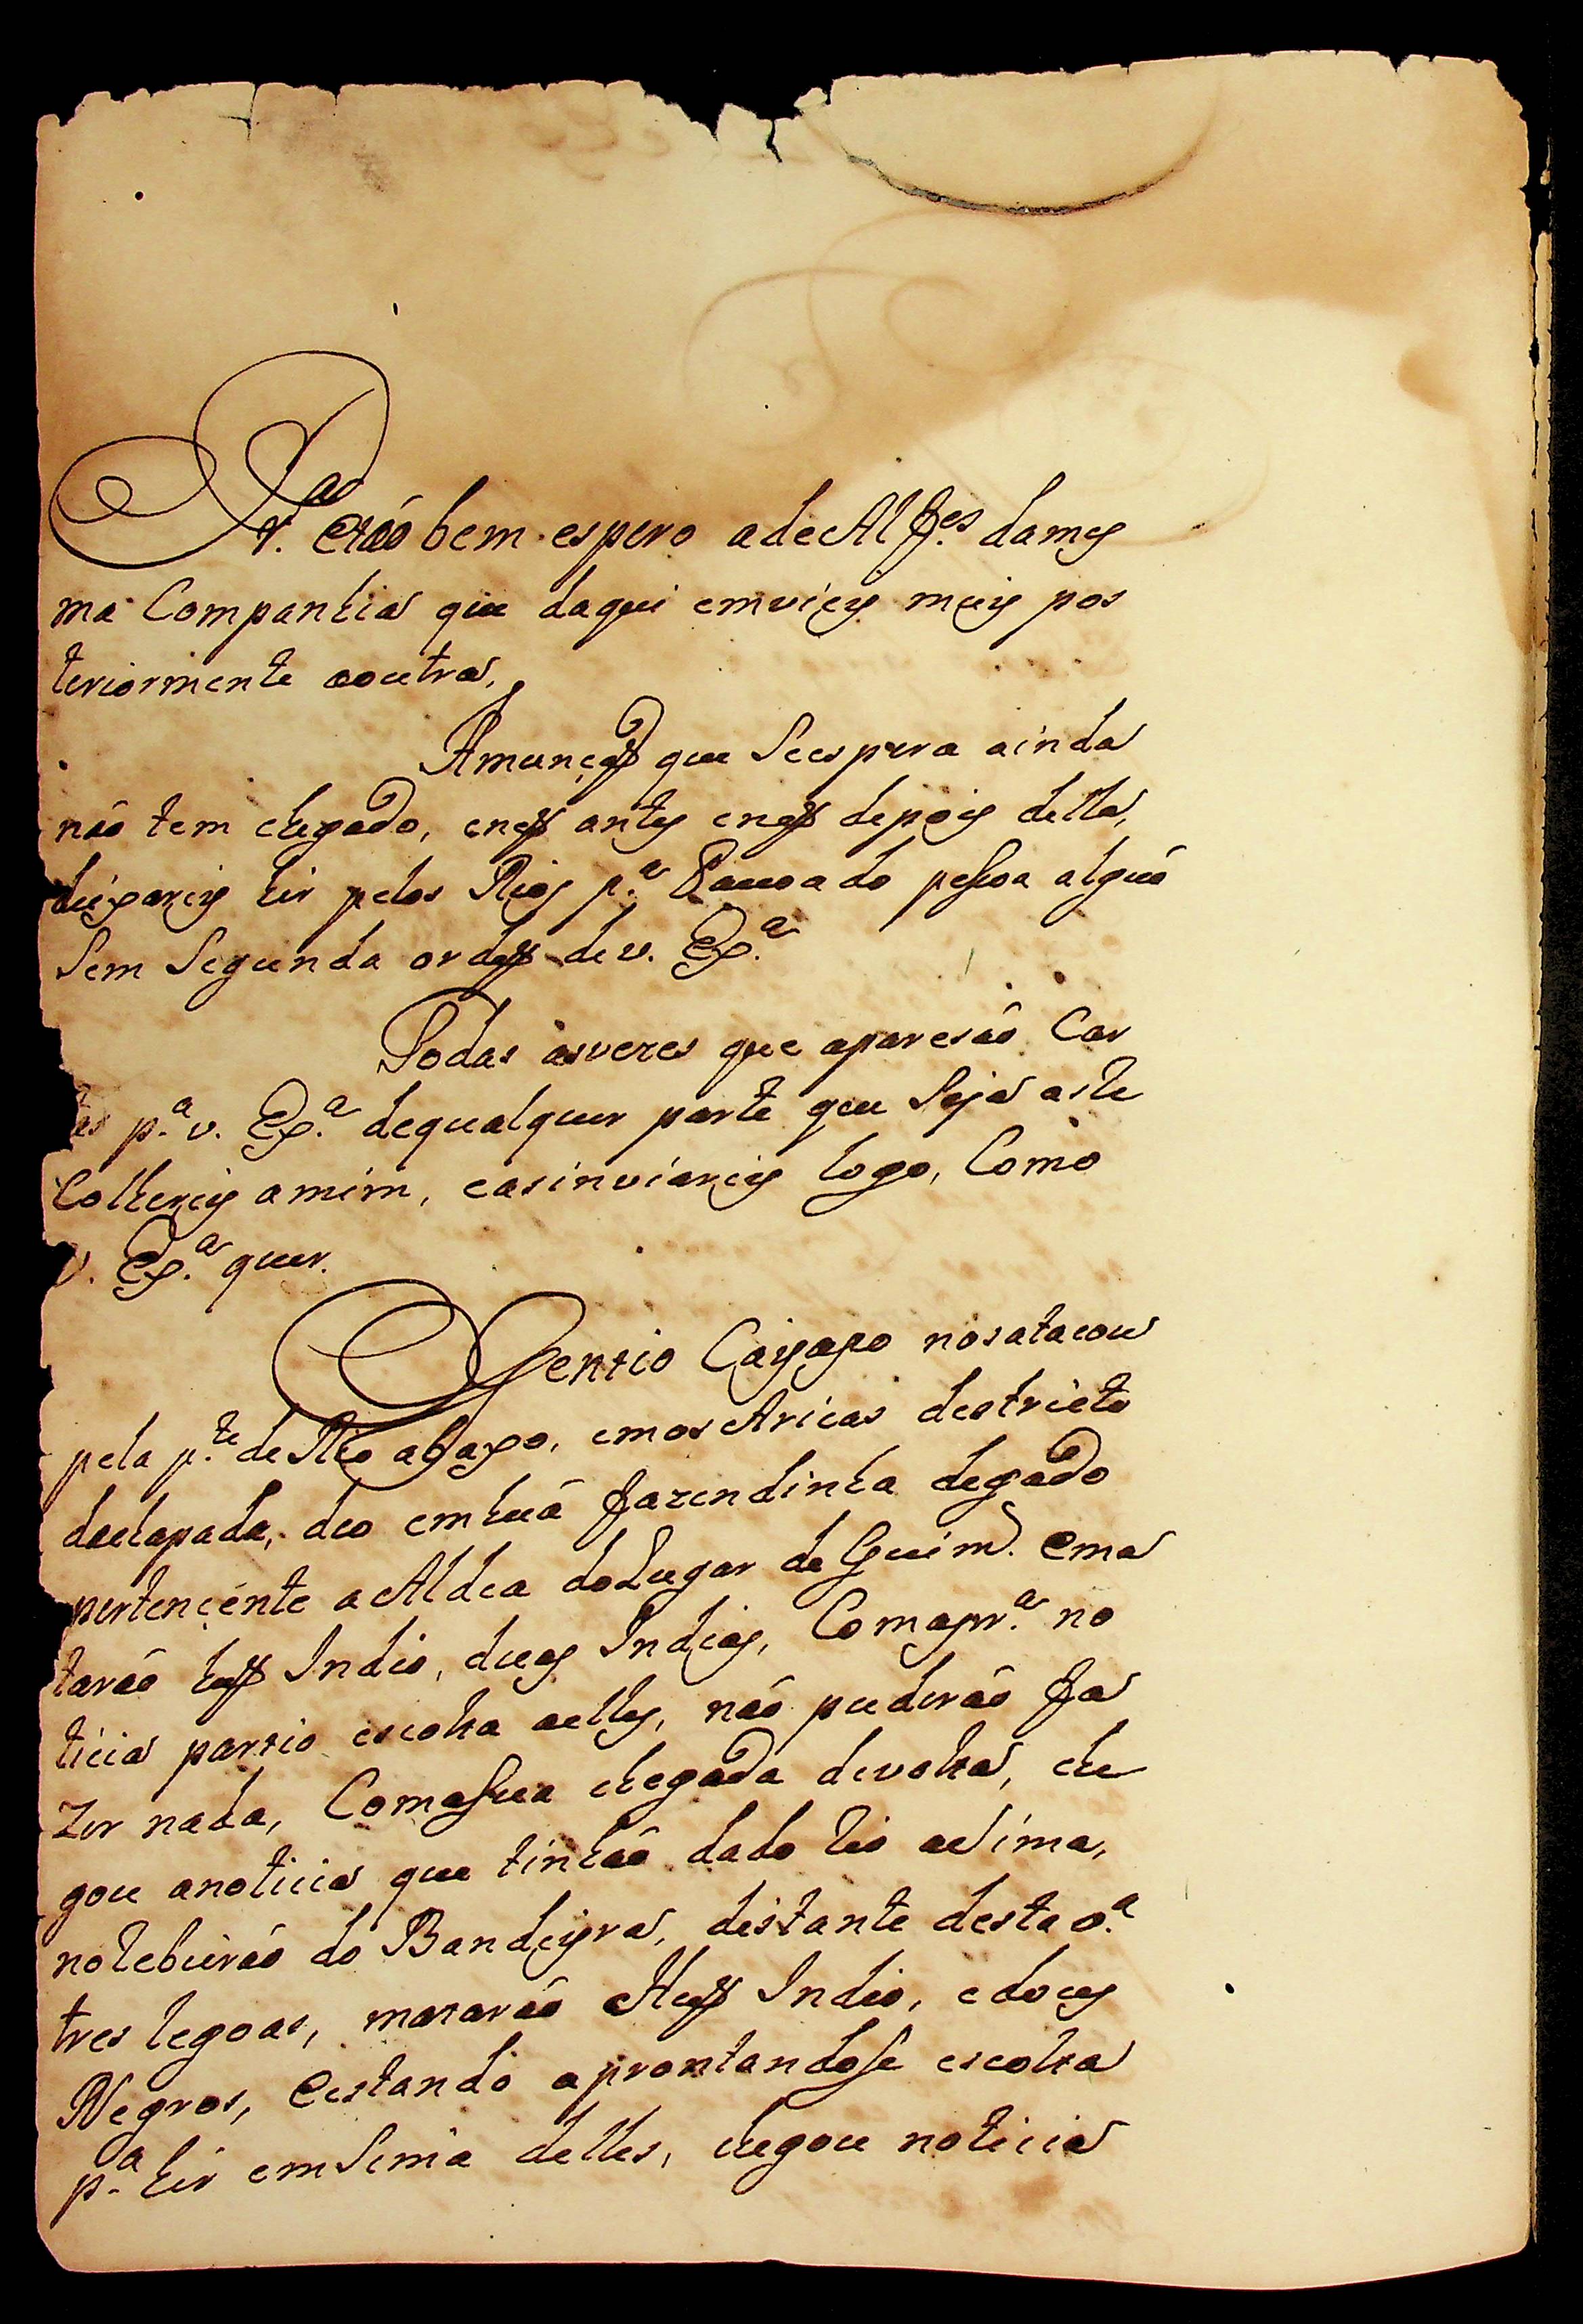 bem espero a de Alf.es da mes
ma Companhia que daqui emviey mais pos
teriormente a outra,
Amuneçaõ que Seespera ainda
não tem chegado, enem antes enem depois della,
deixarey hir pelos Rios p.a Povoado pessoa algũa
Sem Segunda ordem de v. Ex.a
Todas asvezes que aparesão Car
tas p.a v. Ex.a dequalquer parte que Seja aste
Colherey amim, easinviarey logo, Como
v. Ex.a quer.
Gentio Cayapo nosatacou
pela p.te de Rio abaxo, emos Aricas destricto
daclapada, deo emhuã fazendinha degado
pertencente aAldea doLugar de Guim.es Ema
tarão hum Indio, duas Indias, Comapr.a no
ticia partio escolta aelles, não puderão fa
zer nada, ComaSua chegada devolta, che
gou anoticia que tinhão dado Rio asima,
noRebeirão do Bandeyra, distante desta v.a
tres legoas, matarão Hum Indio, edous
Negros, Eestando aprontandose escolta
p.a hir emSima delles, chegou noticia